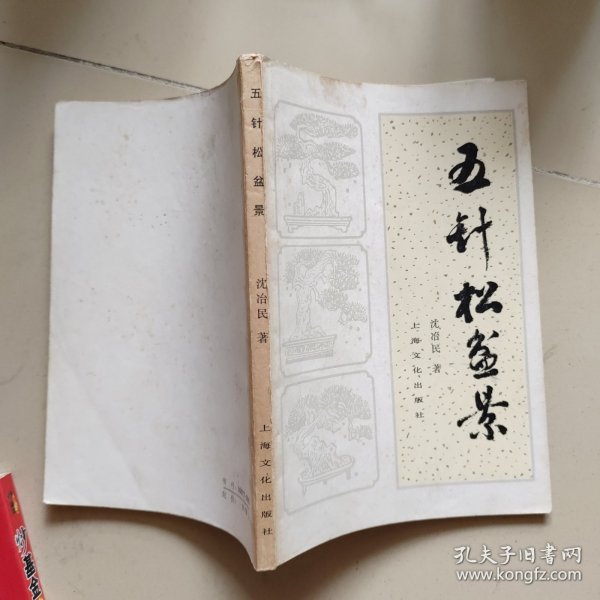 五针松盆景
沈冶民 著
上海文化出版社
五针松盆景
沈冶民 著
上海文化出版社
孔夫子旧书网
www.kongfz.com